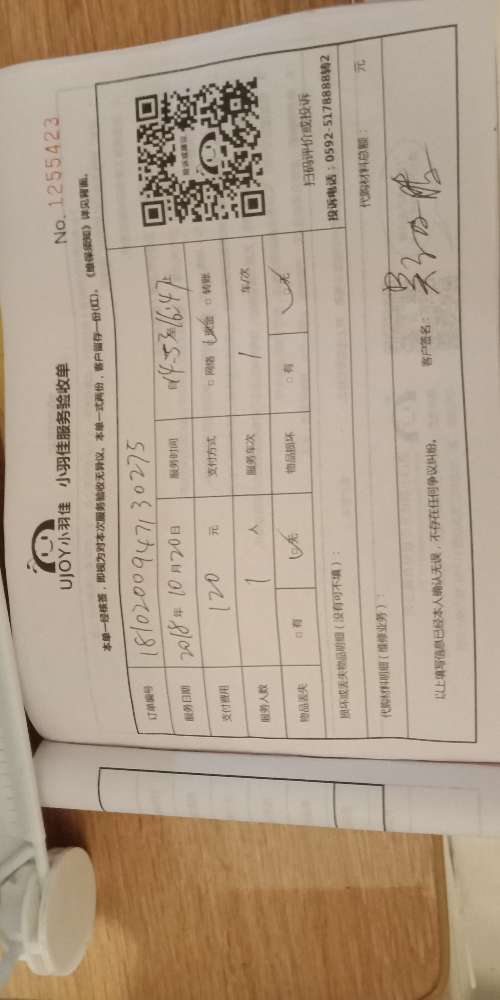 UJOY小羽佳 小羽佳服务验收单
No. 1255423
本单一经核签，即视为对本次服务验收无异议。本单一式两份，客户留存一份(红)。《维保须知》详见背面。
订单编号 181020094713 0275
服务日期 2018年10月20日 服务时间 自14:53至16:47止
支付费用 120 元 支付方式 □网络 ☑现金 □转账
服务人数 1 人 服务车次 1 车/次
物品丢失 □有 ☑无 物品损坏 □有 ☑无
投诉或建议
扫码评价或投诉
投诉电话：0592-5178888转2
损坏或丢失物品明细（没有可不填）：
代购材料明细（维修业务）： 代购材料总额： 元
以上填写信息已经本人确认无误，不存在任何争议纠纷。 客户签名：